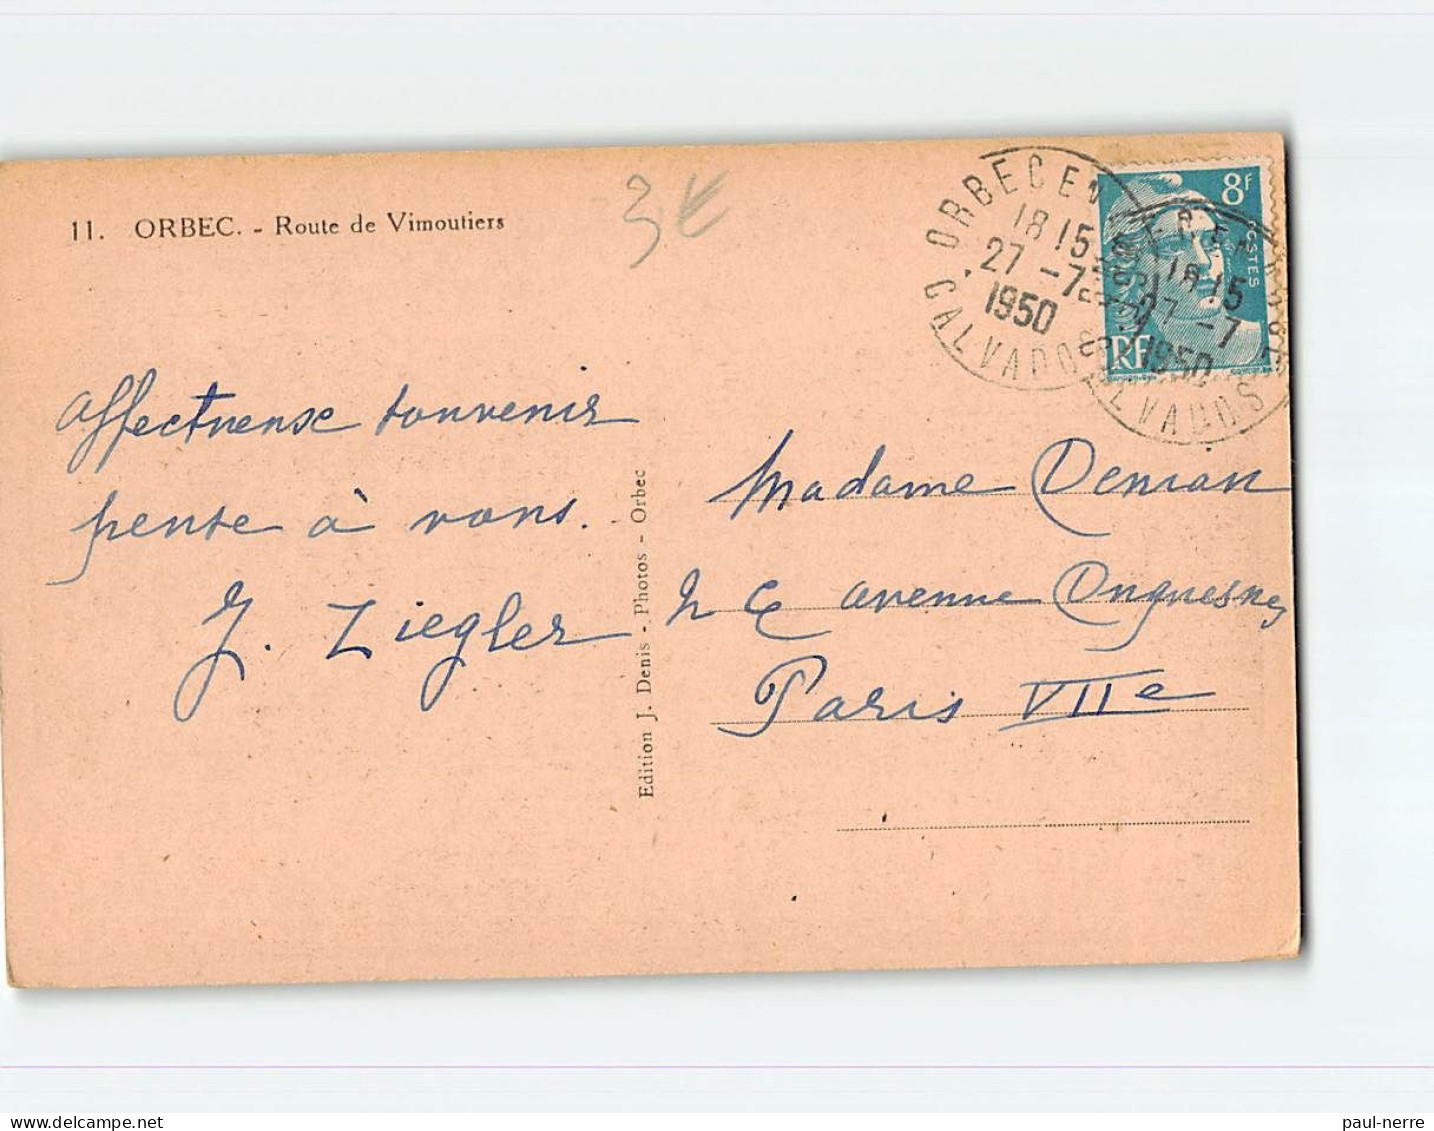 11. ORBEC. - Route de Vimoutiers
3€
ORBEC EN
18 15
27 -7
1950
CALVADOS
8f
POSTES
RF
18 15
27 -7
1950
CALVADOS
Affectueuse souvenir
pense à vous.
J. Ziegler
Edition J. Denis - Photos - Orbec
Madame
avenue Duquesne
Paris VIIe
delcampe.net
paul-nerre